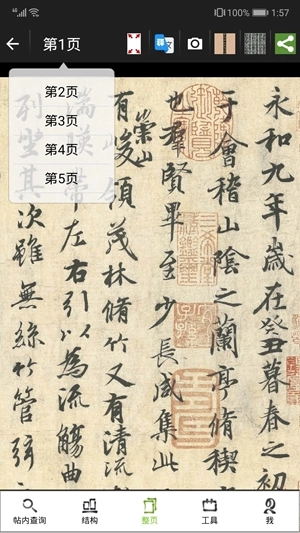 100%
1:57
第1页
第2页
第3页
第4页
第5页
永和九年歲在癸丑暮春之初
于會稽山陰之蘭亭脩稧
也羣賢畢至少長咸集此
有崇山峻領茂林脩竹又有清流
湍暎帶左右引以為流觴曲
列坐其次雖無絲竹管弦
帖内查询
结构
整页
工具
我